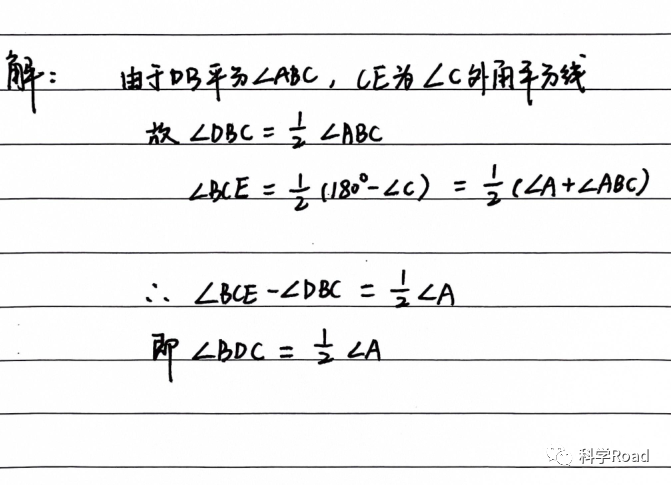 解： 由于DB平分∠ABC，CE为∠C外角平分线
故 ∠DBC = 1/2 ∠ABC
∠BCE = 1/2 (180°-∠C) = 1/2 (∠A+∠ABC)
∴ ∠BCE-∠DBC = 1/2 ∠A
即 ∠BDC = 1/2 ∠A
科学Road